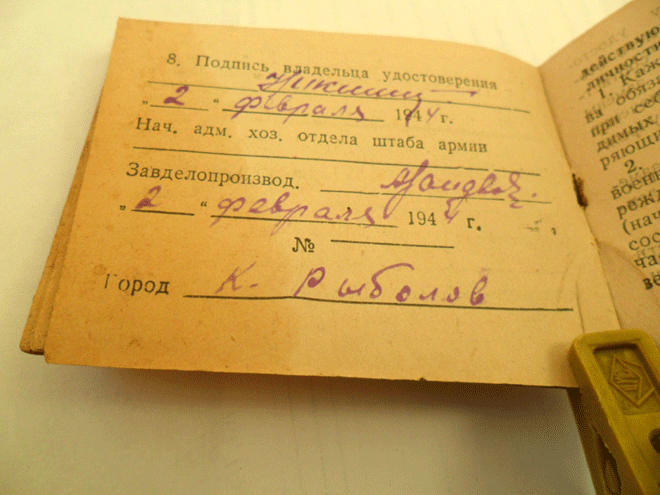 8. Подпись владельца удостоверения
„ 2 “ февраля 1944 г.
Нач. адм. хоз. отдела штаба армии
Завделопроизвод.
„ 2 “ февраля 1944 г.
№
Город К. Рыболов
действую
личности
1. Каж
ва обяза
при себ
димых
ряющи
2.
военн
реж
(нач
сос
час